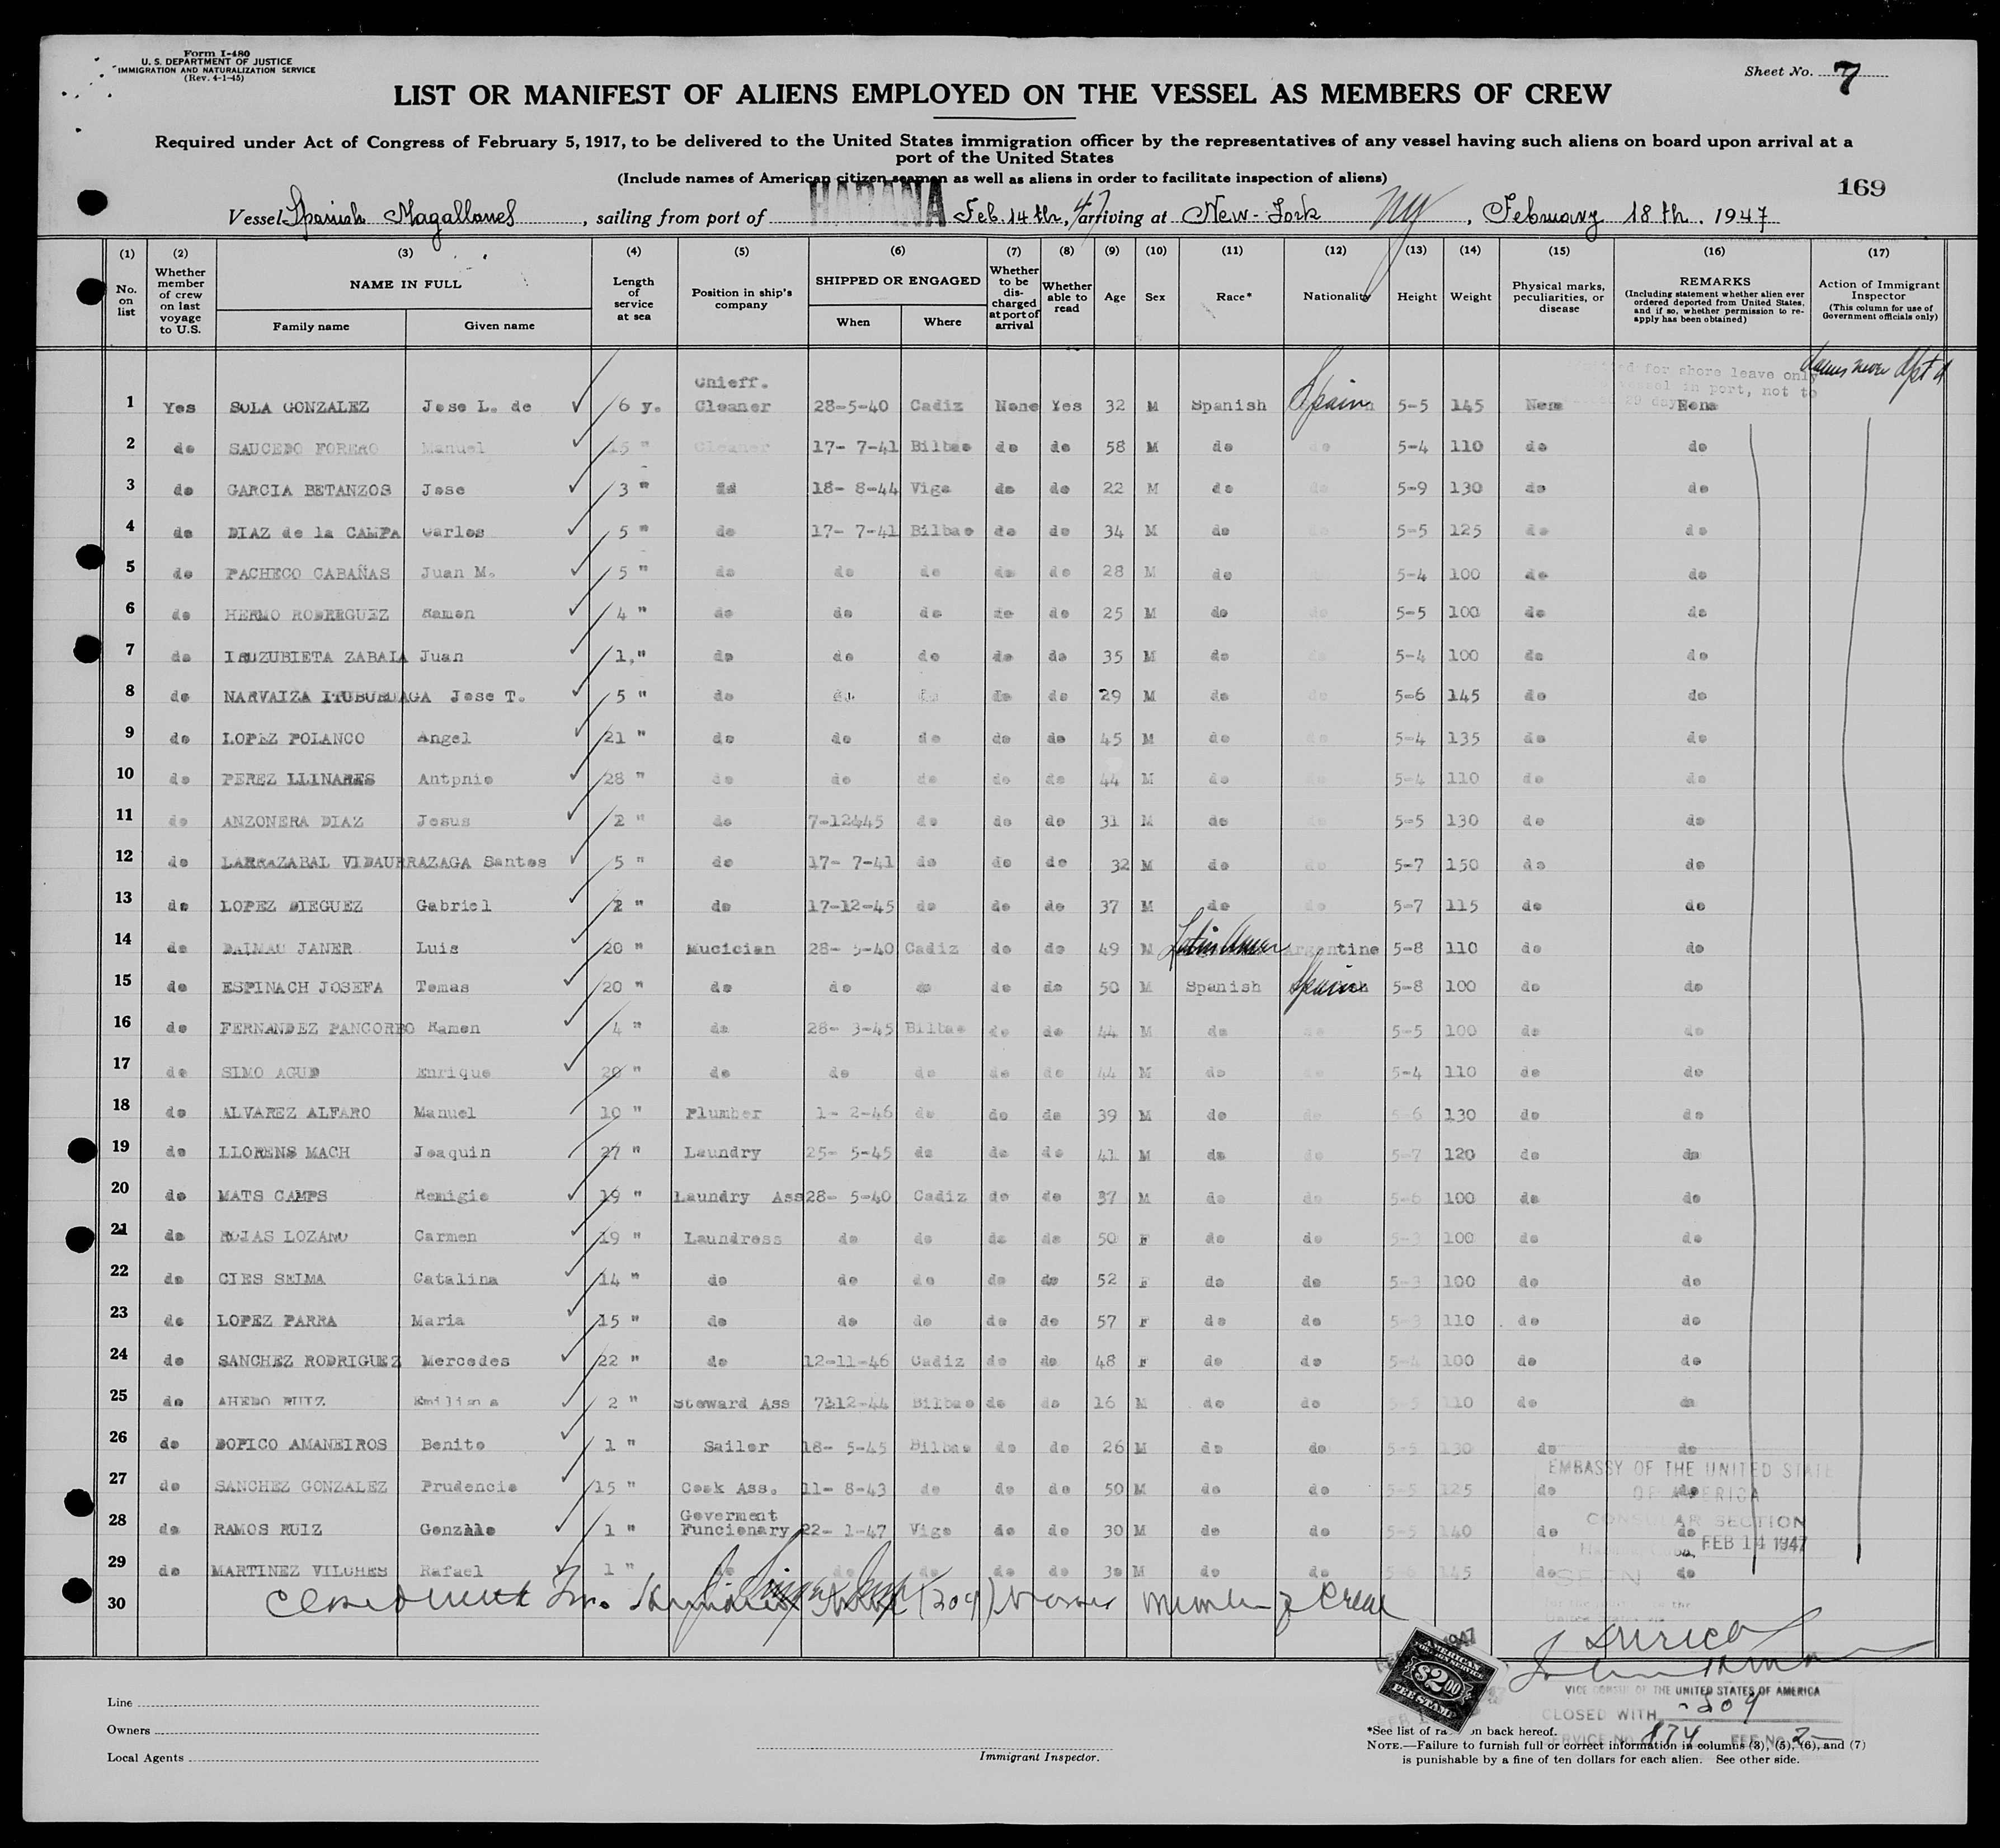 Form I-480
U. S. DEPARTMENT OF JUSTICE
IMMIGRATION AND NATURALIZATION SERVICE
(Rev. 4-1-45)
Sheet No. 7
LIST OR MANIFEST OF ALIENS EMPLOYED ON THE VESSEL AS MEMBERS OF CREW
Required under Act of Congress of February 5, 1917, to be delivered to the United States immigration officer by the representatives of any vessel having such aliens on board upon arrival at a
port of the United States
(Include names of American citizen seamen as well as aliens in order to facilitate inspection of aliens)
169
Vessel Spanish Magallanes, sailing from port of HABANA Feb. 14th, 47 arriving at New-York NY, February 18th. 1947
(1) (2) (3) (4) (5) (6) (7) (8) (9) (10) (11) (12) (13) (14) (15) (16) (17)
No. on list
Whether member of crew on last voyage to U.S.
NAME IN FULL
Family name Given name
Length of service at sea
Position in ship's company
SHIPPED OR ENGAGED
When Where
Whether to be discharged at port of arrival
Whether able to read
Age
Sex
Race*
Nationality
Height
Weight
Physical marks, peculiarities, or disease
REMARKS
(Including statement whether alien ever ordered deported from United States, and if so, whether permission to re-apply has been obtained)
Action of Immigrant Inspector
(This column for use of Government officials only)
for shore leave only
vessel in port, not to
29 days
1 Yes SOLA GONZALEZ Jose L. de 6 y. Chieff. Cleaner 28-5-40 Cadiz None Yes 32 M Spanish Spain 5-5 145 Non None
2 do SAUCEDO FORERO Manuel 15 " Cleaner 17- 7-41 Bilbao do do 58 M do do 5-4 110 do do
3 do GARCIA BETANZOS Jose 3 " do 18- 8-44 Vigo do do 22 M do do 5-9 130 do do
4 do DIAZ de la CAMPA Carlos 5 " do 17- 7-41 Bilbao do do 34 M do 5-5 125 do do
5 do PACHECO CABAÑAS Juan M. 5 " do do do do do 28 M do do 5-4 100 do do
6 do HERMO RODRRGUEZ Ramon 4 " do do do do do 25 M do do 5-5 100 do do
7 do ZABALA Juan 1," do do do do do 35 M do do 5-4 100 do do
8 do NARVAIZA Jose T. 5 " do do do do do 29 M do do 5-6 145 do do
9 do LOPEZ POLANCO Angel 21 " do do do do do 45 M do do 5-4 135 do do
10 do PEREZ LLINARES Antpnio 28 " do do do do do 44 M do do 5-4 110 do do
11 do ANZONERA DIAZ Jesus 2 " do 7-12445 do do do 31 M do do 5-5 130 do do
12 do LARRAZABAL VIDAURRAZAGA Santos 5 " do 17- 7-41 do do do 32 M do do 5-7 150 do do
13 do LOPEZ DIEGUEZ Gabriel 2 " do 17-12-45 do do do 37 M do do 5-7 115 do do
14 do DALMAU JANER Luis 20 " Mucician 28- 5-40 Cadiz do do 49 M Latin Amer Argentine 5-8 110 do do
15 do ESPINACH JOSEFA Tomas 20 " do do do do do 50 M Spanish Spain 5-8 100 do do
16 do FERNANDEZ PANCORBO Ramon 4 " do 28- 3-45 Bilbao do do 44 M do do 5-5 100 do do
17 do SIMO AGUD Enrique 20 " do do do do do 44 M do do 5-4 110 do do
18 do ALVAREZ ALFARO Manuel 10 " Plumber 1- 2-46 do do do 39 M do do 5-6 130 do do
19 do LLORENS MACH Joaquin 27 " Laundry 25- 5-45 do do do 41 M do do 5-7 120 do do
20 do MATS CAMPS Remigio 19 " Laundry Ass 28- 5-40 Cadiz do do 37 M do do 5-6 100 do do
21 do ROJAS LOZANO Carmen 19 " Laundress do do do do 50 F do do 5-3 100 do do
22 do CIES SEIMA Catalina 14 " do do do do do 52 F do do 5-3 100 do do
23 do LOPEZ PARRA Maria 15 " do do do do do 57 F do do 5-3 110 do do
24 do SANCHEZ RODRIGUEZ Mercedes 22 " do 12-11-46 Cadiz do do 48 F do do 5-4 100 do do
25 do AHEDO RUIZ 2 " Steward Ass 7-12-44 Bilbao do do 16 M do do 5-5 110 do do
26 do DOPICO AMANEIROS Benito 1 " Sailor 18- 5-45 Bilbao do do 26 M do do 5-5 130 do do
27 do SANCHEZ GONZALEZ Prudencio 15 " Cook Ass. 11- 8-43 do do do 50 M do do 5-5 125 do do
28 do RAMOS RUIZ Gonzalo 1 " Goverment Funcionary 22- 1-47 Vigo do do 30 M do do 5-5 140 do do
29 do MARTINEZ VILCHES Rafael 1 " do do do do do 30 M do do 145 do do
30
(209) Member of Crew
EMBASSY OF THE UNITED STATE
OF AMERICA
CONSULAR SECTION
FEB 14 1947
SEEN
AMERICAN
FOREIGN SERVICE
$2.00
FEE STAMP
VICE CONSUL OF THE UNITED STATES OF AMERICA
CLOSED WITH -209
SERVICE NO. 874 FEE NO. 2-
Line
Owners
Local Agents
Immigrant Inspector.
*See list of ra on back hereof.
NOTE.—Failure to furnish full or correct information in columns (3), (5), (6), and (7)
is punishable by a fine of ten dollars for each alien. See other side.